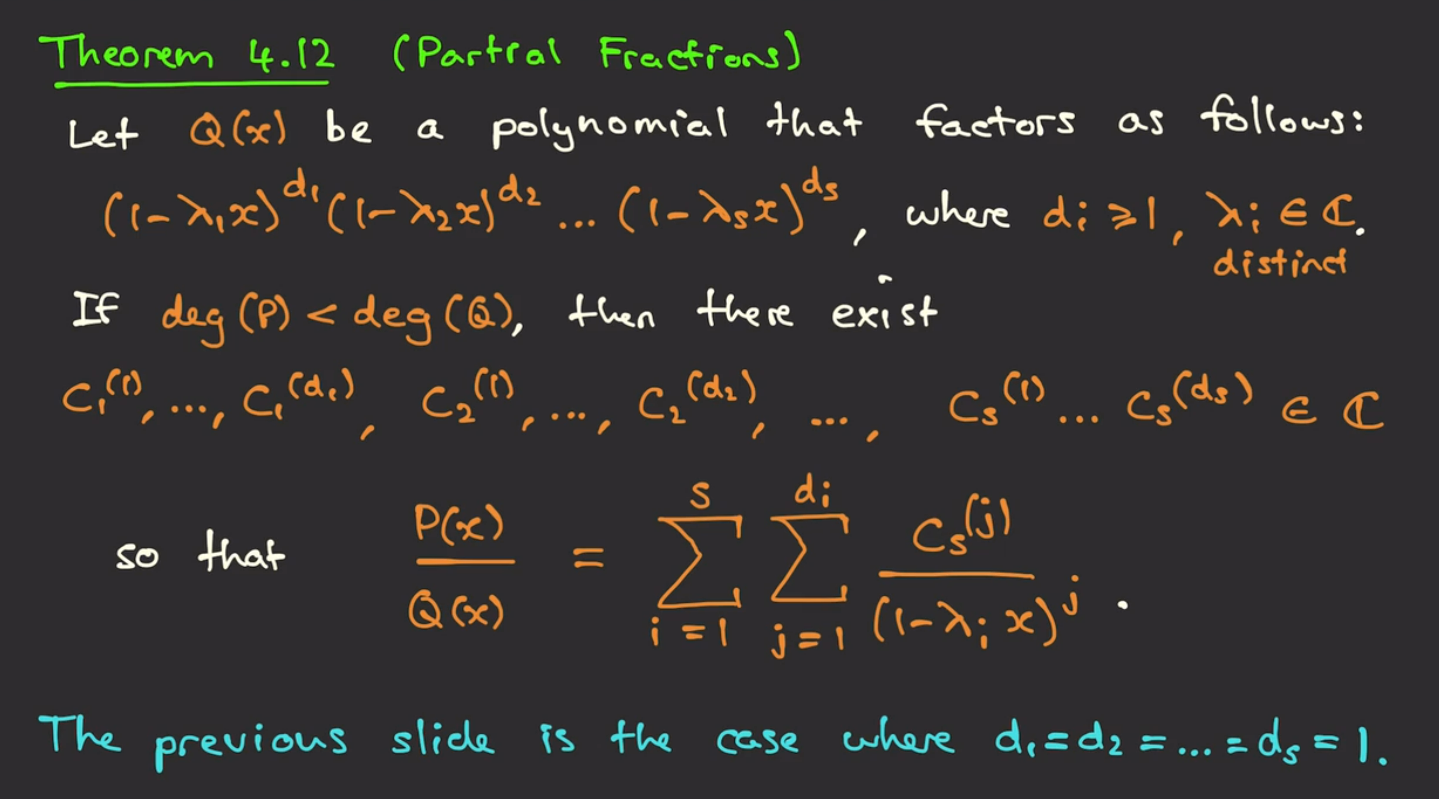 Theorem 4.12 (Partial Fractions)
Let Q(x) be a polynomial that factors as follows:
(1-λ₁x)^d₁ (1-λ₂x)^d₂ ... (1-λₛx)^dₛ, where dᵢ ≥ 1, λᵢ ∈ ℂ.
distinct
If deg(P) < deg(Q), then there exist
C₁^(1), ..., C₁^(d₁), C₂^(1), ..., C₂^(d₂), ..., Cₛ^(1) ... Cₛ^(dₛ) ∈ ℂ
so that P(x)/Q(x) = ∑_{i=1}^{s} ∑_{j=1}^{dᵢ} Cₛ^(j)/(1-λᵢx)^j.
The previous slide is the case where d₁=d₂=...=dₛ=1.